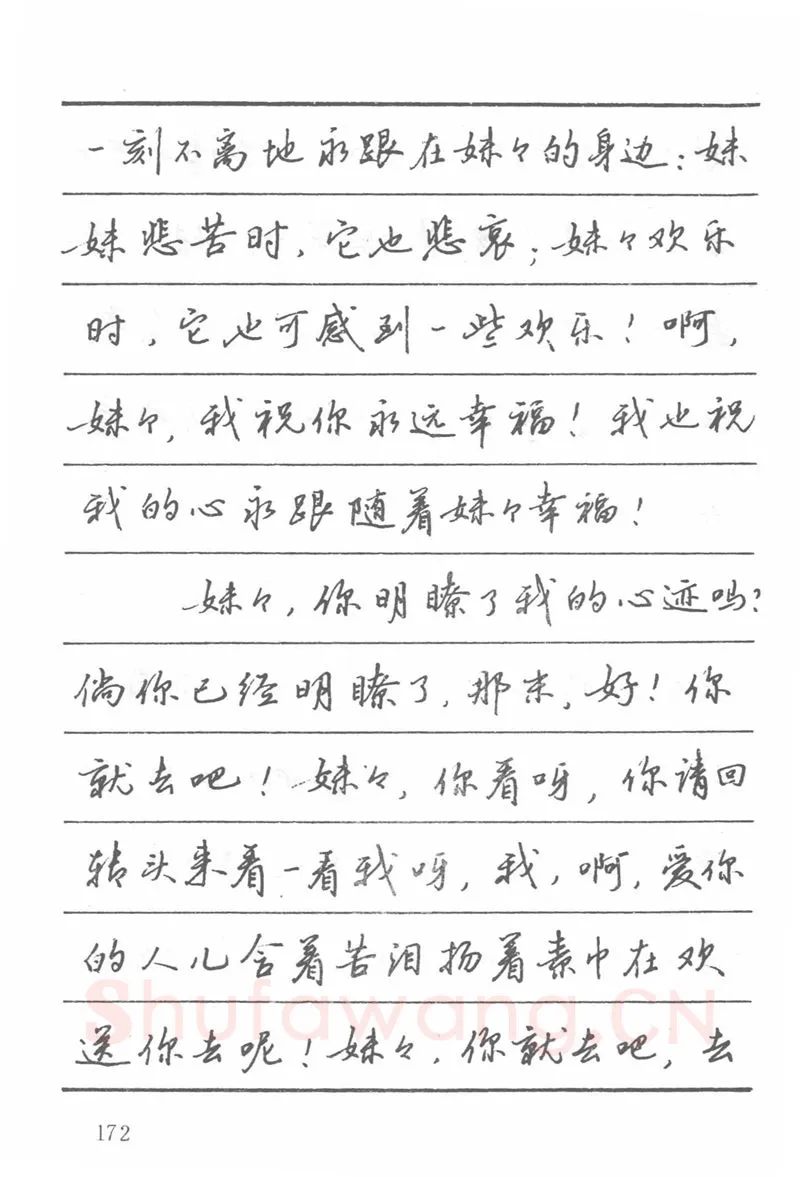 一刻不离地永跟在妹々的身边：妹
妹悲苦时，它也悲哀；妹々欢乐
时，它也可感到一些欢乐！啊，
妹々，我祝你永远幸福！我也祝
我的心永跟随着妹々幸福！
妹々，你明瞭了我的心迹吗？
倘你已经明瞭了，那末，好！你
就去吧！妹々，你看呀，你请回
转头来看一看我呀，我，啊，爱你
的人儿含着苦泪扬着素巾在欢
送你去呢！妹々，你就去吧，去
Shufawang.CN
172